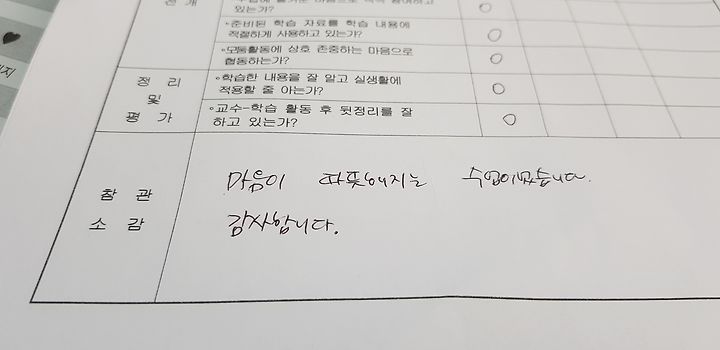 전 개
있는가?
◦준비된 학습 자료를 학습 내용에
적절하게 사용하고 있는가?
◦모둠활동에 상호 존중하는 마음으로
협동하는가?
정 리
및
평 가
◦학습한 내용을 잘 알고 실생활에
적용할 줄 아는가?
◦교수-학습 활동 후 뒷정리를 잘
하고 있는가?
참 관
소 감
마음이 따뜻해지는 수업이었습니다.
감사합니다.